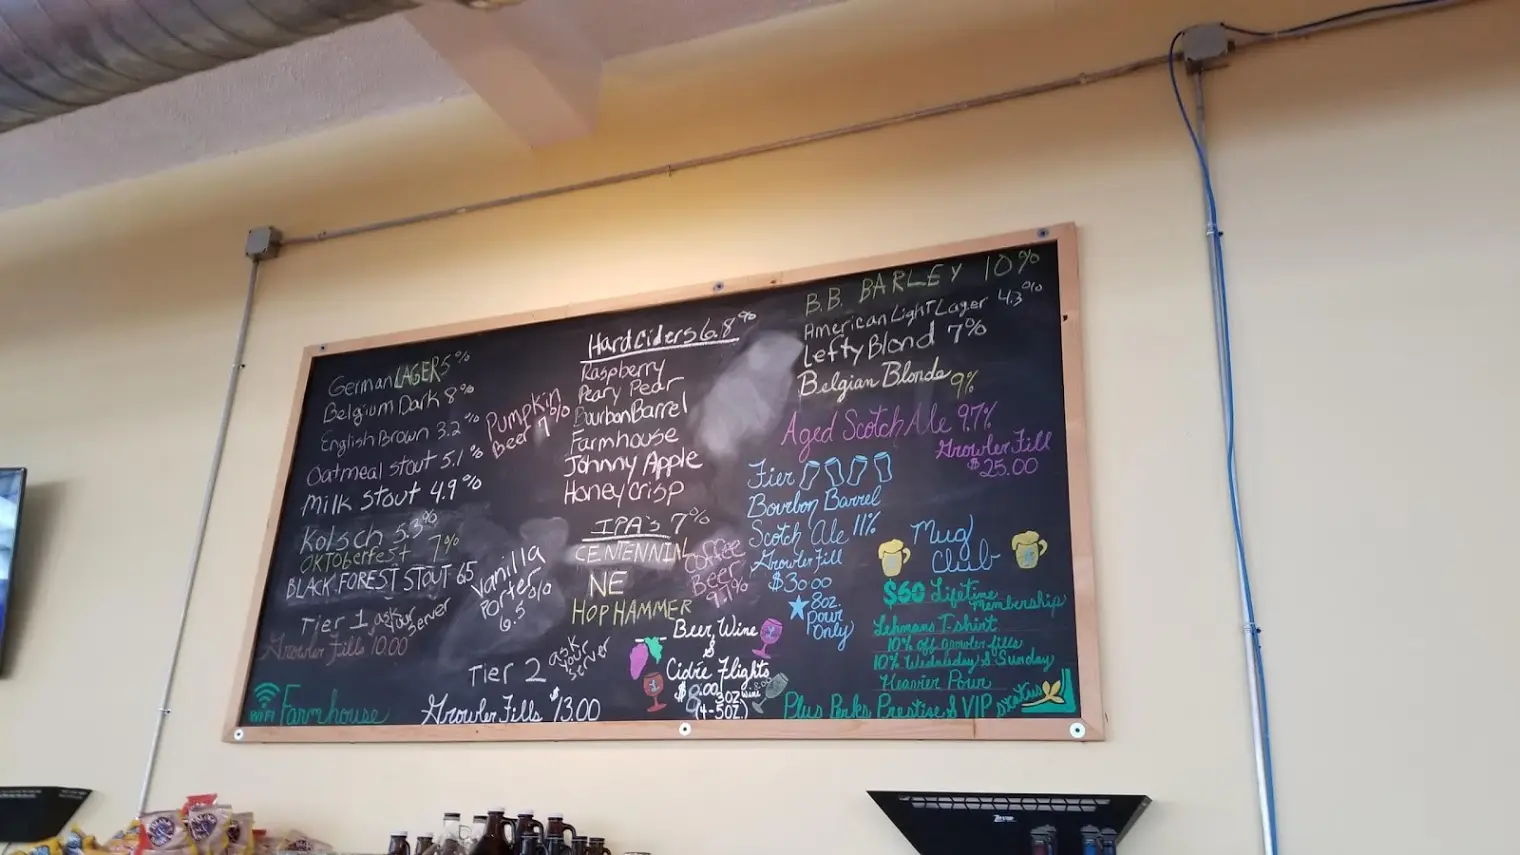 German LAGER 5%
Belgium Dark 8%
English Brown 3.2%
Oatmeal Stout 5.1%
Milk Stout 4.9%
Kolsch 5.3%
OKTOBERFEST 7%
BLACK FOREST STOUT 6.5
Tier 1 ask your server
Growler Fills 10.00
WiFi Farmhouse
Pumpkin
Beer 7%
Vanilla
Porter
6.5
Tier 2 ask your server
Growler Fills $13.00
Hard Ciders 6.8%
Raspberry
Peary Pear
Bourbon Barrel
Farmhouse
Johnny Apple
Honey Crisp
IPA's 7%
CENTENNIAL
NE
HOP HAMMER
Coffee
Beer
9.1%
Beer Wine
&
Cidre Flights
$8.00
3oz wine
(4-5oz.)
B.B. BARLEY 10%
American Light Lager 4.3%
Lefty Blond 7%
Belgian Blonde 9%
Aged Scotch Ale 9.7%
Growler Fill
$25.00
Tier
Bourbon Barrel
Scotch Ale 11%
Growler Fill
$30.00
8oz.
Pour
Only
Mug
Club
$60 Lifetime
Membership
Lehmans T-shirt
10% off Growler fills
10% Wednesday & Sunday
Heavier Pour
Plus Perks Prestise & VIP status